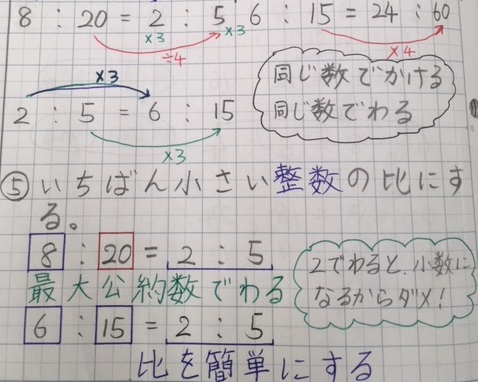 8 : 20 = 2 : 5 6 : 15 = 24 : 60
×3 ×3
÷4 ×4
×3
2 : 5 = 6 : 15
×3
同じ数でかける
同じ数でわる
⑤いちばん小さい整数の比にす
る。
8 : 20 = 2 : 5
最大公約数でわる
6 : 15 = 2 : 5
2でわると、小数に
なるからダメ!
比を簡単にする